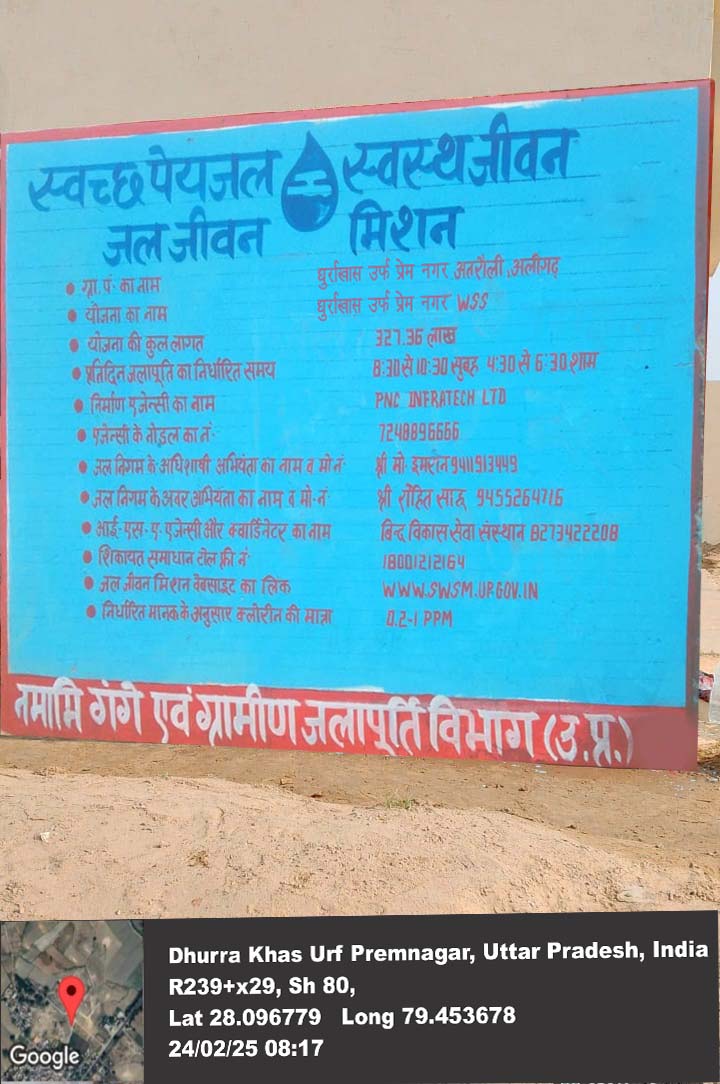 स्वच्छ पेयजल स्वस्थ जीवन
जल जीवन मिशन
ग्रा. पं. का नाम धुर्राखास उर्फ प्रेम नगर अतरौली, अलीगढ़
योजना का नाम धुर्राखास उर्फ प्रेम नगर WSS
योजना की कुल लागत 327.36 लाख
प्रतिदिन जलापूर्ति का निर्धारित समय 8:30 से 10:30 सुबह 4:30 से 6:30 शाम
निर्माण एजेन्सी का नाम PNC INFRATECH LTD
एजेन्सी के नोडल का नं. 7248896666
जल निगम के अधिशाषी अभियंता का नाम व मो.नं. श्री मो. इमरान 9411913449
जल निगम के अवर अभियंता का नाम व मो.नं. श्री रोहित साहू 9455264716
आई.एस.ए. एजेन्सी और क्वार्डिनेटर का नाम बिन्द विकास सेवा संस्थान 8273422208
शिकायत समाधान टोल फ्री नं. 18001212164
जल जीवन मिशन वेबसाइट का लिंक WWW.SWSM.UP.GOV.IN
निर्धारित मानक के अनुसार क्लोरीन की मात्रा 0.2-1 PPM
नमामि गंगे एवं ग्रामीण जलापूर्ति विभाग (उ.प्र.)
Dhurra Khas Urf Premnagar, Uttar Pradesh, India
R239+x29, Sh 80,
Lat 28.096779 Long 79.453678
24/02/25 08:17
Google